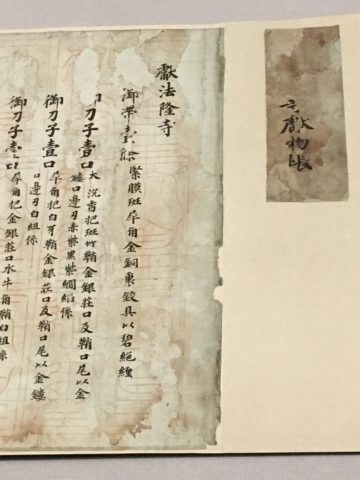 寺獻物帳
獻法隆寺
御帶壹條 緊膜斑犀角金銅裹鉸具以碧絁纏
刀子壹口 沉香把斑竹鞘金銀莊口及鞘口尾以金
口邊刃赤紫黑紫縚係
御刀子壹口 犀角把白牙鞘金銀莊口及鞘口尾以金鏤
口邊刃白組係
御刀子壹口 犀角把金銀莊口水牛角鞘白組係